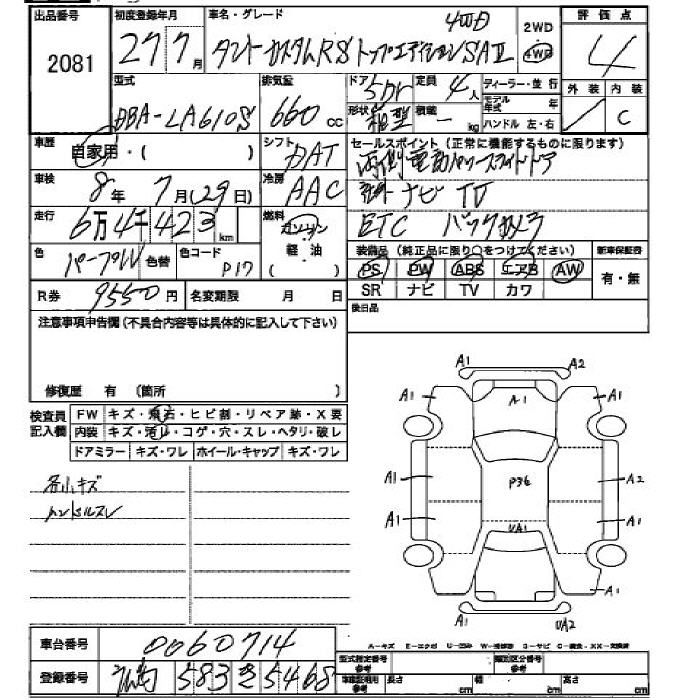 出品番号 初度登録年月 車名・グレード 評価点
2081 27 7月 タント カスタムRS トップエディションSAⅡ 4WD 2WD 4WD 4
型式 排気量 ドア 5Dr 定員 4人 ディーラー・並行 外装 内装
DBA-LA610S 660cc 形状 箱型 積載 - kg モデル年式 年 ハンドル 左・右 C
車歴 自家用・( ) シフト DAT セールスポイント(正常に機能するものに限ります)
両側電動パワースライドドア
車検 8年 7月(29日) 冷房 AAC 社外ナビ TV
走行 6万4千423km 燃料 ガソリン 軽油 ( ) ETC バックカメラ
色 パープルM 色替 色コード P17 装備品(純正品に限り○をつけてください) 新車保証書
PS PW ABS エアB AW 有・無
R券 9550円 名変期限 月 日 SR ナビ TV カワ
注意事項申告欄(不具合内容等は具体的に記入して下さい) 後日品
修復歴 有 (箇所 )
検査員記入欄 FW キズ・飛石・ヒビ割・リペア跡・X要
内装 キズ・汚レ・コゲ・穴・スレ・ヘタリ・破レ
ドアミラー キズ・ワレ ホイール・キャップ キズ・ワレ
各小キズ
ハンドルスレ
A1 A2
A1 A1 A1
A1 P36 A2
A1 UA1 A1
A1
A1 UA2
A-キズ E-エクボ U-凹ミ
車台番号 0060714
登録番号 583 を 5468
型式指定番号 参考 類別区分番号 参考
長さ cm 幅 cm 高さ cm